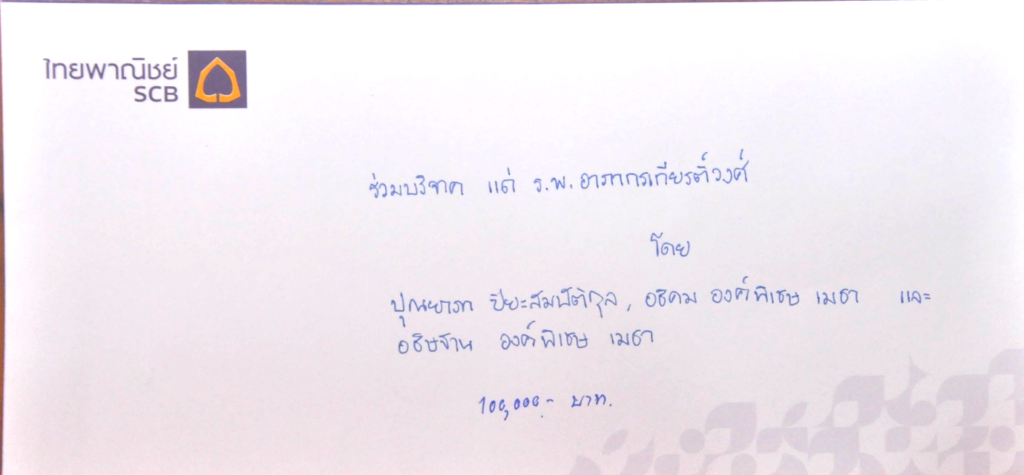 ไทยพาณิชย์
SCB
ร่วมบริจาค แด่ ร.พ.อาภากรเกียรติวงศ์
โดย
ปุณยาภา ปิยะสัมปัติกุล, อธิคม องค์พิเชษ เมธา และ
อธิษฐาน องค์พิเชษ เมธา
100,000.- บาท.